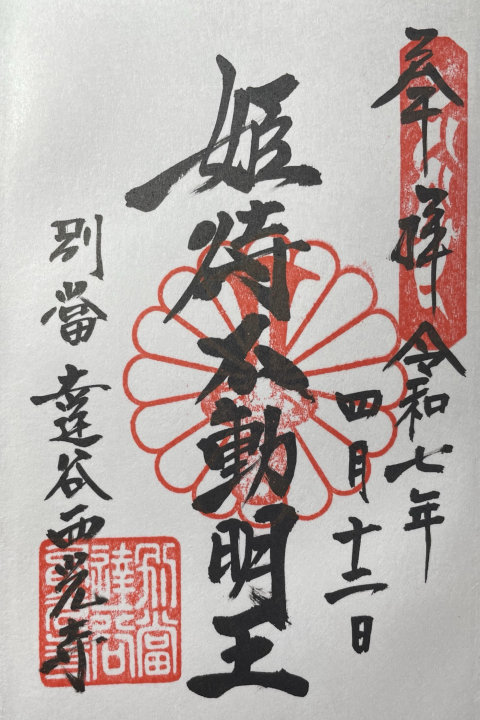 奉拝
令和七年
四月十二日
姫待不動明王
別當 達谷西光寺
別當
達谷
西光寺